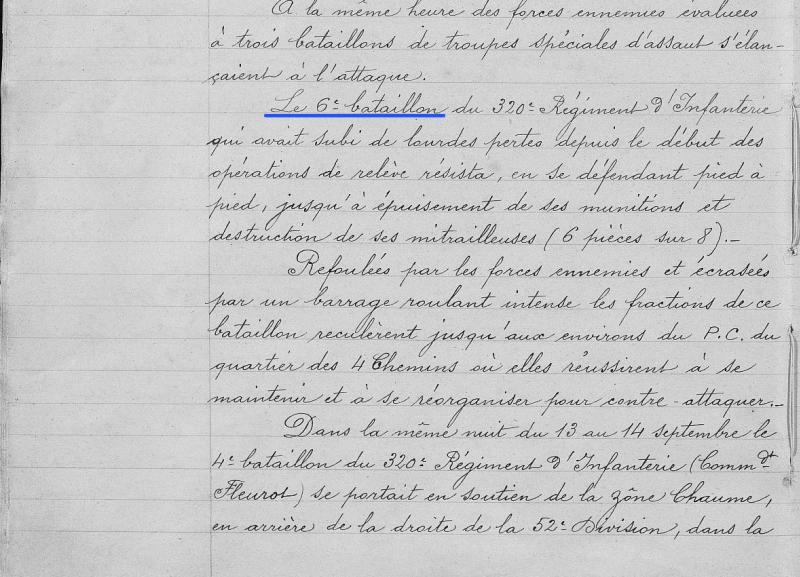 A la même heure des forces ennemies évaluées
à trois bataillons de troupes spéciales d'assaut s'élan-
çaient à l'attaque.
Le 6e bataillon du 320e Régiment d'Infanterie
qui avait subi de lourdes pertes depuis le début des
opérations de relève résista, en se défendant pied à
pied, jusqu'à épuisement de ses munitions et
destruction de ses mitrailleuses (6 pièces sur 8).-
Refoulées par les forces ennemies et écrasées
par un barrage roulant intense les fractions de ce
bataillon reculèrent jusqu'aux environs du P.C. du
quartier des 4 Chemins où elles réussirent à se
maintenir et à se réorganiser pour contre-attaquer.-
Dans la même nuit du 13 au 14 septembre le
4e bataillon du 320e Régiment d'Infanterie (Commdt
Fleurot) se portait en soutien de la zône Chaume,
en arrière de la droite de la 52e Division, dans la